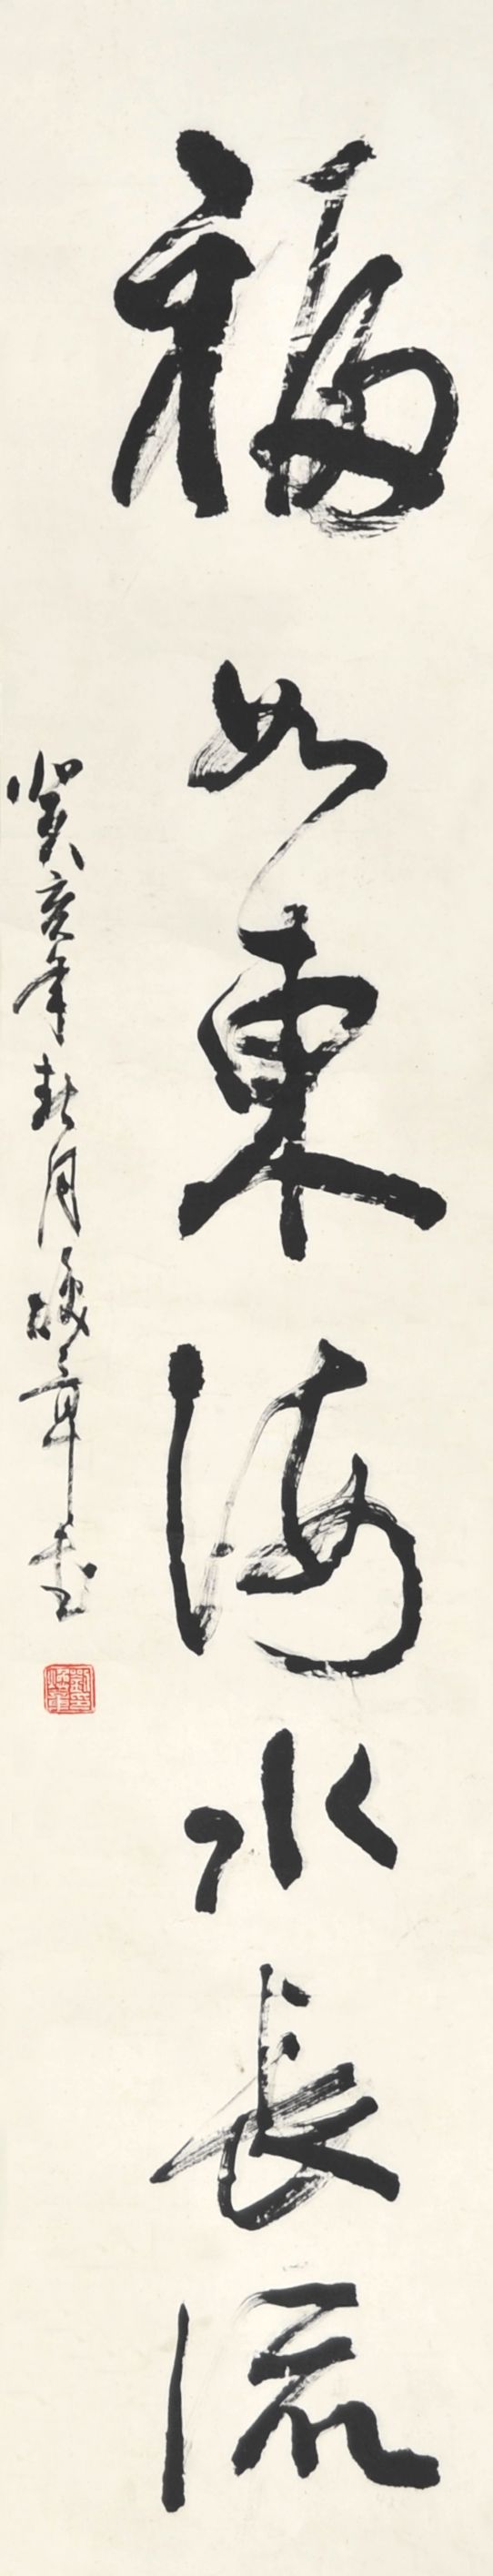 福如東海水長流
癸亥年秋月煥章書